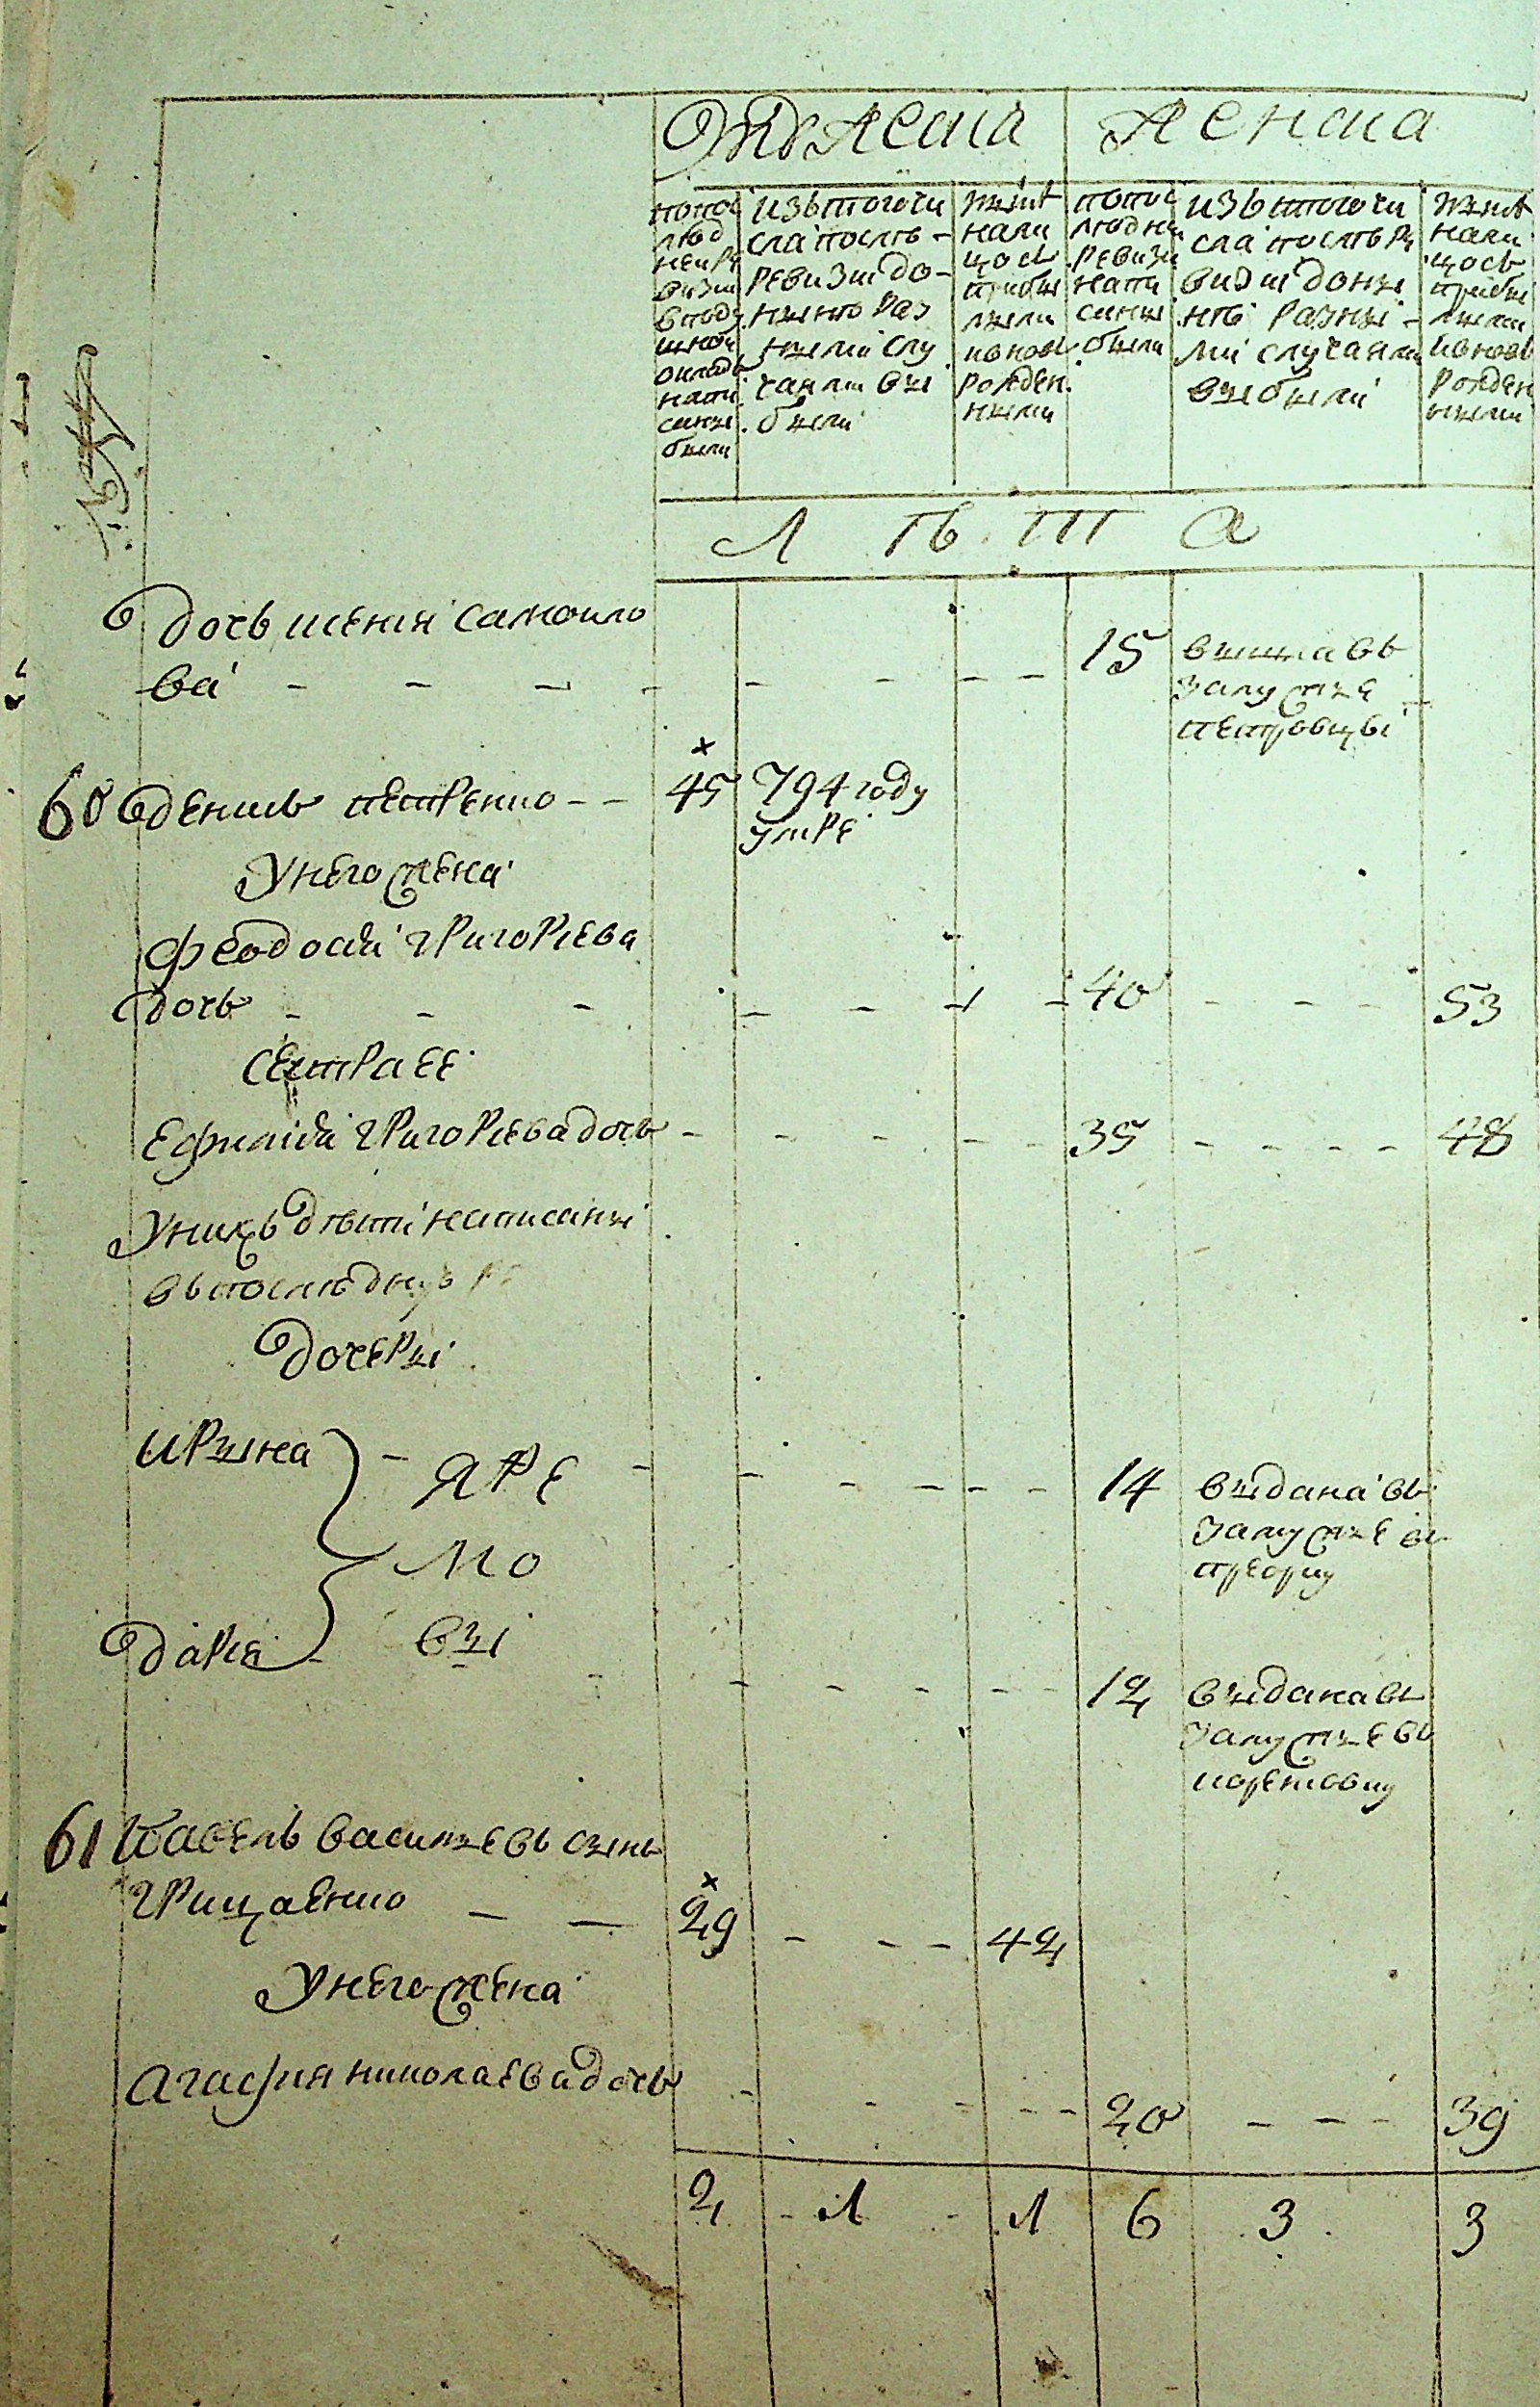 Мужеска Женска
попос люд ней ре визии в поду шной окладъ напи саны были
изъ того чи сла после ревизии до ныне раз ными слу чаями вы были
ныне нали цось прибы лыми и новь рожден ными
попос людней ревизи напи саны были
изъ того чи сла после ре визии доны не разны ми случаями выбыли
ныне нали цось прибы лыми и новь рожден ными
Л ѣ т а
дочь ксения самоило
ва - - - - - - - - 15 вышла въ
замужже
петровцы
60 денисъ петренко - - 45 794 году
умре
У него жена
феодосия григориева
дочь - - - - - - - 40 - - - 53
сестра ее
ефимия григориева дочь - - - - - 35 - - - - 48
У нихъ дѣти написаны
въ последнуь
дочеры
ирына - яре - - - - - - 14 выдана въ
замужже въ
мо
дария - вы - - - - - - 12 выдана въ
замужже въ
61 Павелъ васильевъ сынъ
грищаенко - - 29 - - - 42
У него жена
агафия николаева дочь - - - - - 20 - - - 39
2 - 1 - 1 6 3 3